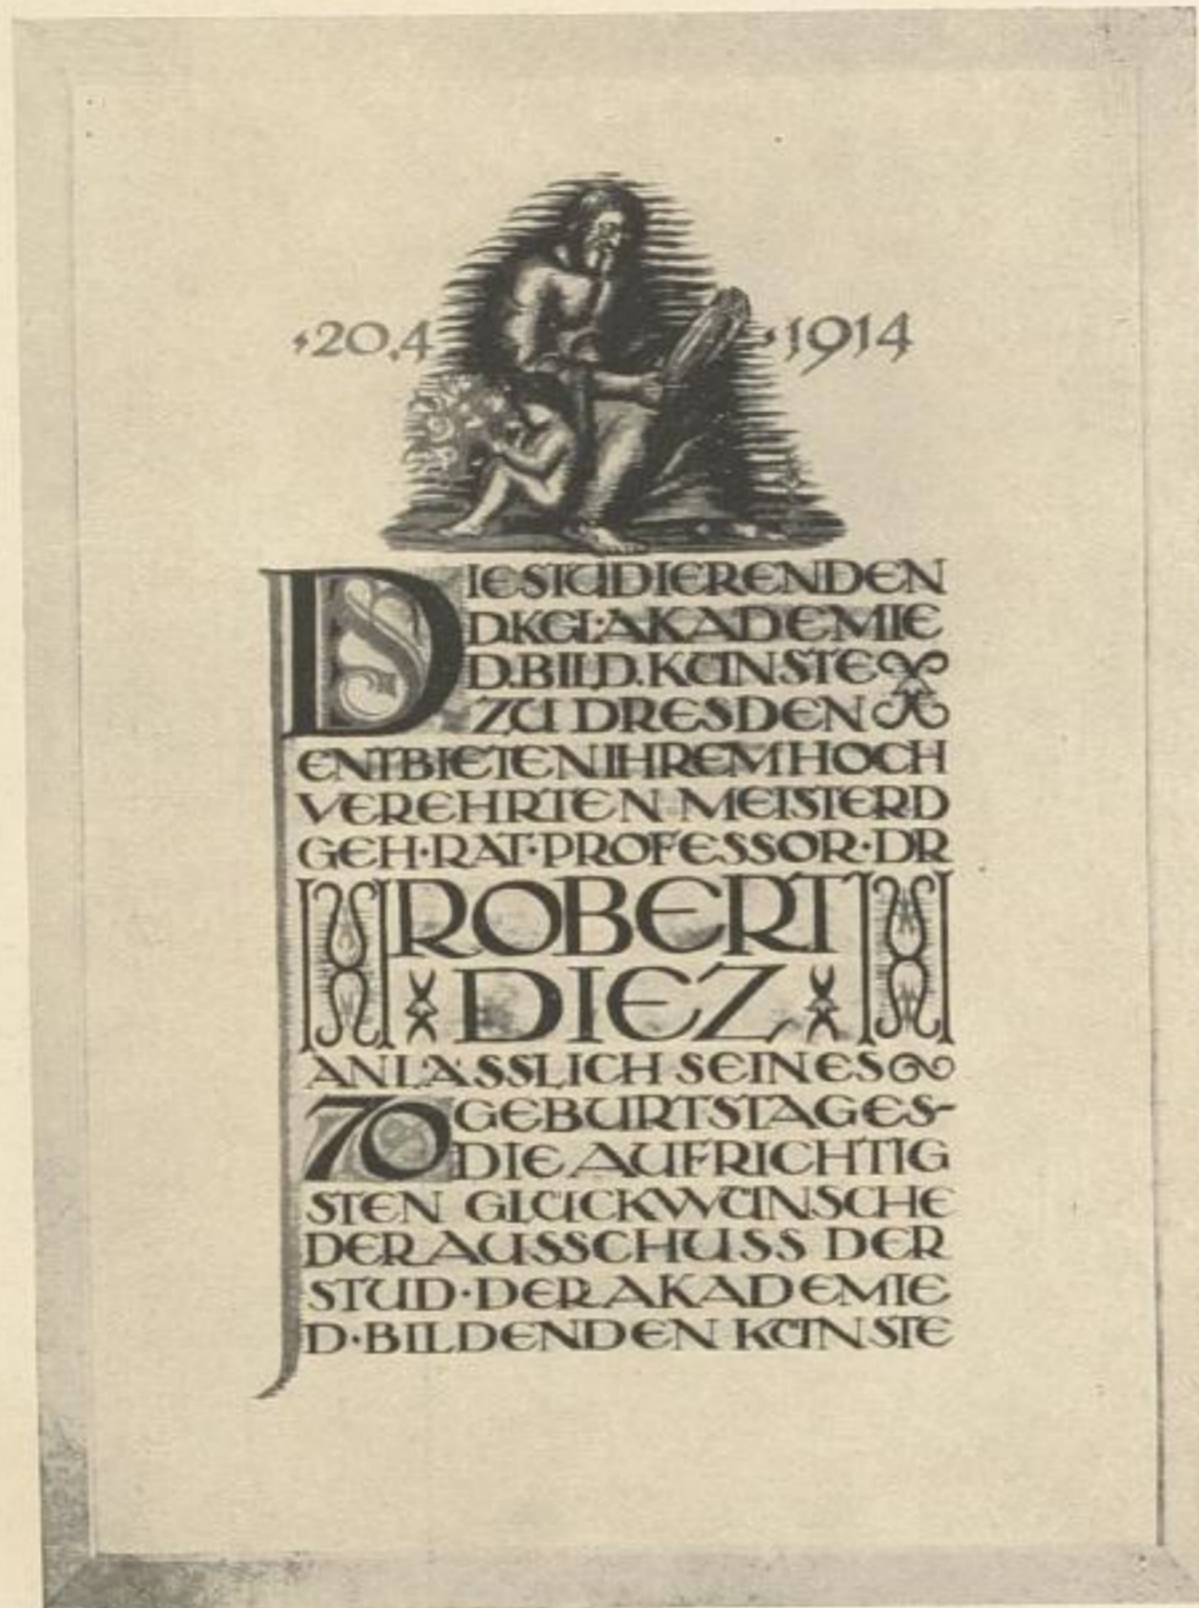 ·20.4 ·1914
DIE STUDIERENDEN
D KGL·AKADEMIE
D.BILD.KÜNSTE
ZU DRESDEN
ENTBIETEN IHREM HOCH
VEREHRTEN MEISTER D
GEH·RAT·PROFESSOR·DR
ROBERT
DIEZ
ANLÄSSLICH SEINES
70 GEBURTSTAGES-
DIE AUFRICHTIG
STEN GLÜCKWÜNSCHE
DER AUSSCHUSS DER
STUD·DER AKADEMIE
D·BILDENDEN KÜNSTE